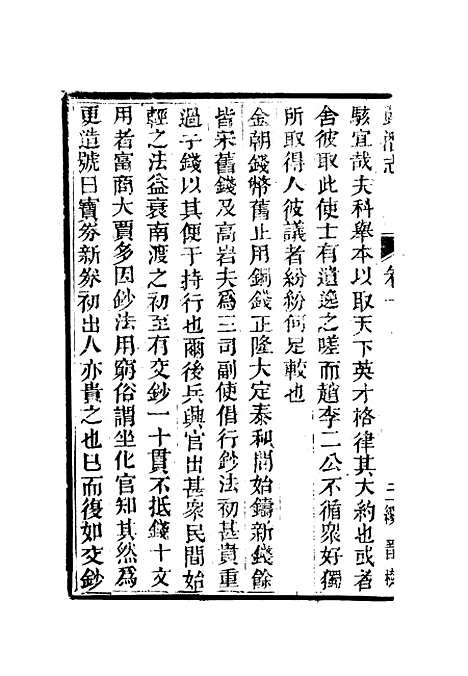 駭宜哉夫科舉本以取天下英才格律其大約也或者
舍彼取此使士有遺逸之嗟而趙李二公不循衆好獨
所取得人彼議者紛紛何足較也
金朝錢幣舊止用銅錢正隆大定泰和間始鑄新錢餘
皆宋舊錢及高岩夫爲三司副使倡行鈔法初甚貴重
過于錢以其便于持行也爾後兵興官出甚衆民間始
輕之法益衰南渡之初至有交鈔一十貫不抵錢十文
用者富商大賈多因鈔法用窮俗謂坐化官知其然爲
更造號曰寶劵新劵初出人亦貴之也已而復如交鈔